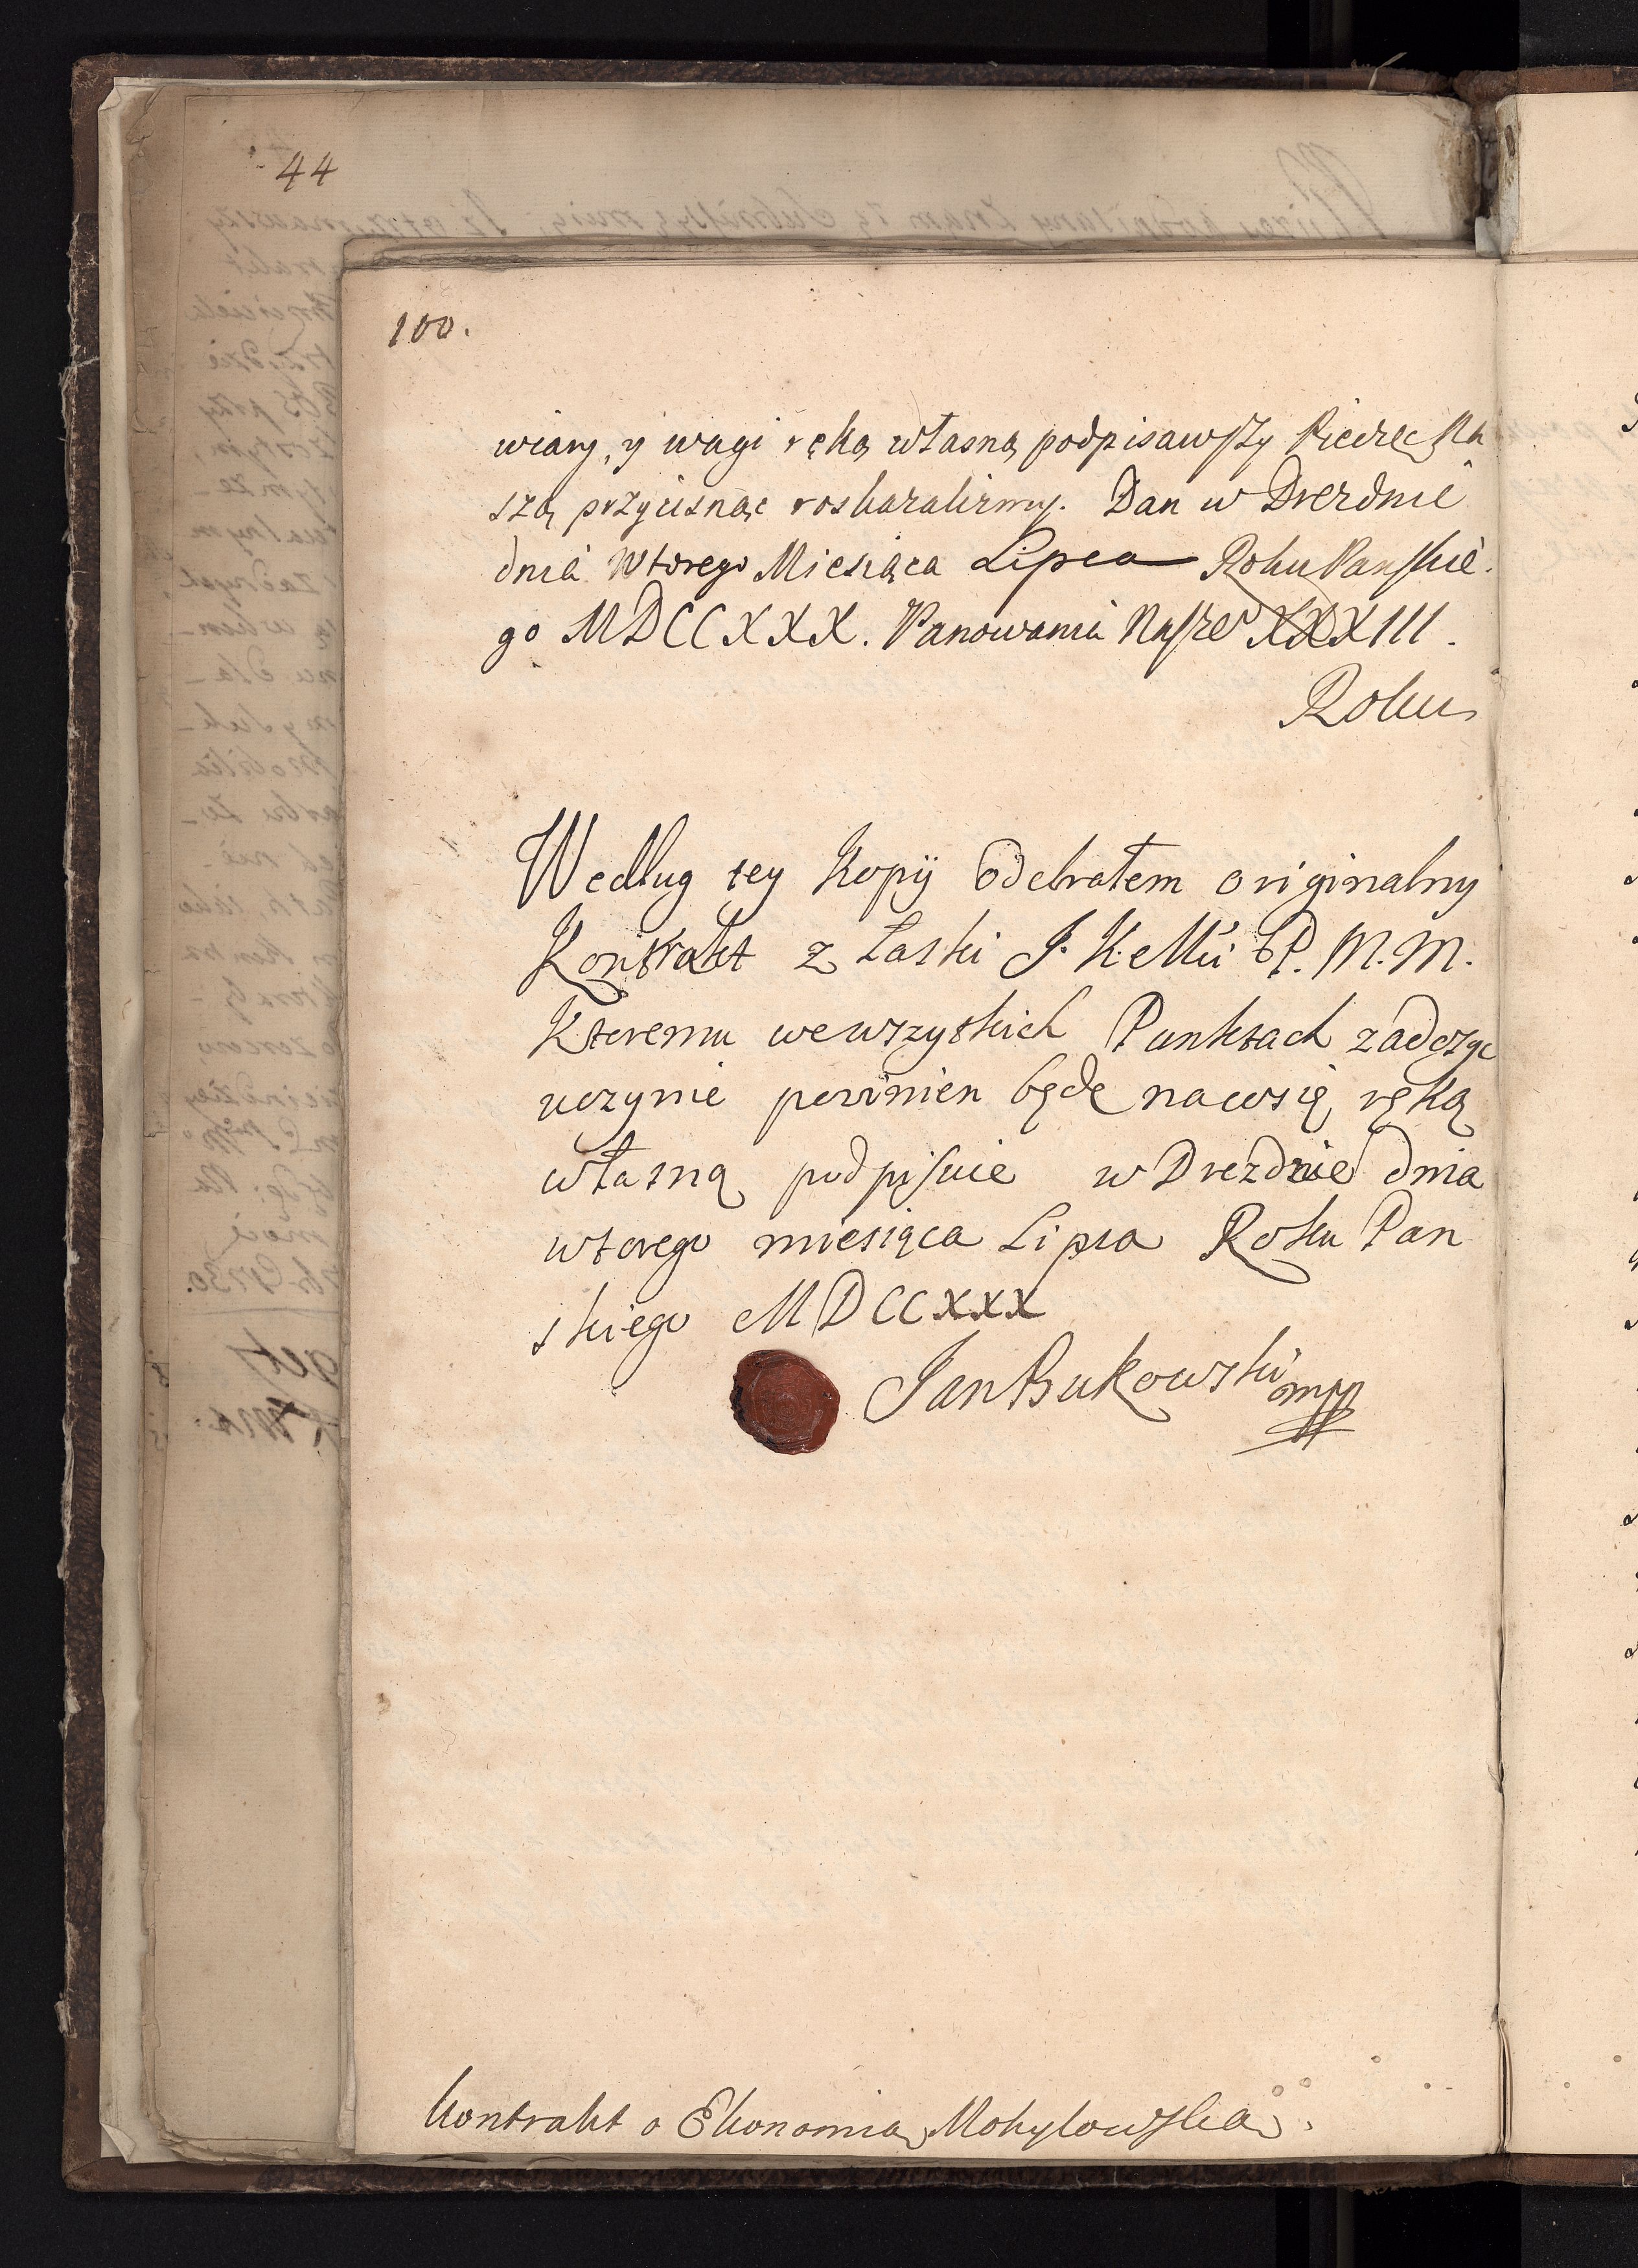 44
100.
wiary, y wagi ręką własną podpisawszy Pieczęć Na
szą przycisnąc roskazalismy. Dan w Dreznie
dnia Wtorego Miesiąca Lipca Roku Panskie
go MDCCXXX. Panowania Nasze XXXIII.
Roku
Według tey Kopij Odebrałem originalny
Kontrakt z Łaski J. K. Mci P. M. M.
Ktoremu wewszystkich Punktach zadosyc
uczynic powinien będę nacosię ręką
własną podpisuie w Dreznie dnia
wtorego miesiąca Lipca Roku Pan
skiego MDCCXXX
Jan Bukowski mpp
Kontrakt o Ekonomią Mohylowską.